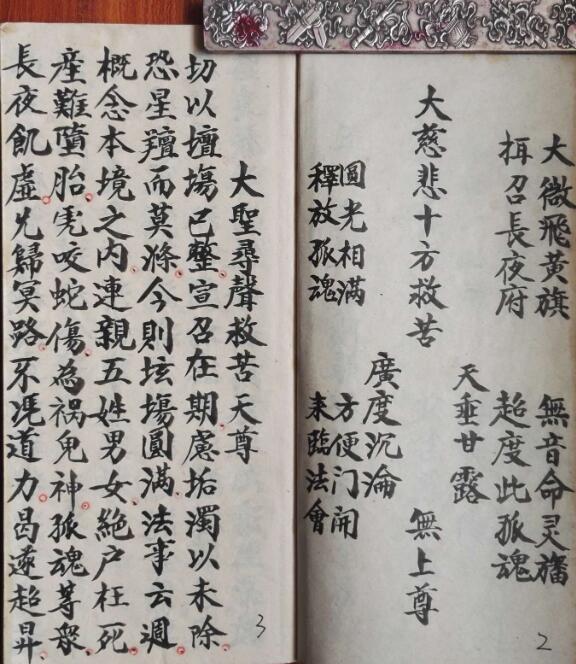 大微飛黃旗 無音命灵旛
拝召長夜府 超度此孤魂
天垂甘露
大慈悲十方救苦 無上尊
廣度沉淪
圓光相滿 方便门開
釋放孤魂 来臨法會
2
大聖尋聲救苦天尊
切以壇塲已整宣召在期慮垢濁以未除
恐星羶而莫滌今則垓塲圓滿法事云週
概念本境之内連親五姓男女絶户枉死
産難墮胎虎咬蛇傷為禍鬼神孤魂等衆
長夜飢虛兄歸冥路不凴道力曷遂超昇
3